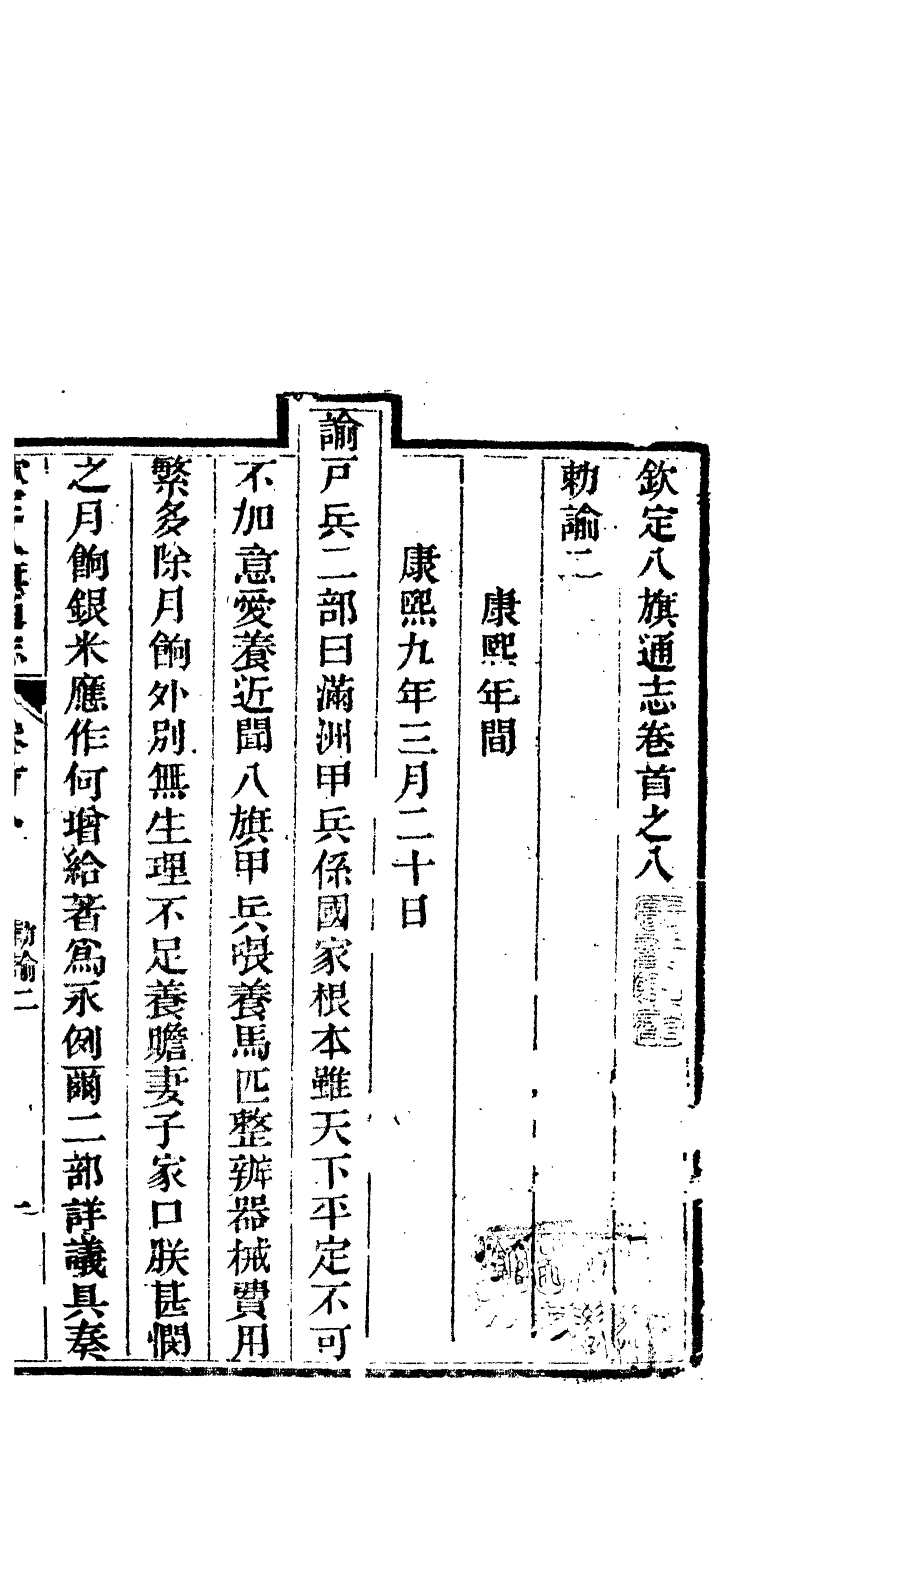 欽定八旗通志卷首之八
勅諭二
康熙年間
康熙九年三月二十日
諭戸兵二部曰滿洲甲兵係國家根本雖天下平定不可
不加意愛養近聞八旗甲兵喂養馬匹整辦器械費用
繁多除月餉外別無生理不足養贍妻子家口朕甚憫
之月餉銀米應作何增給著爲永例爾二部詳議具奏
勅諭二